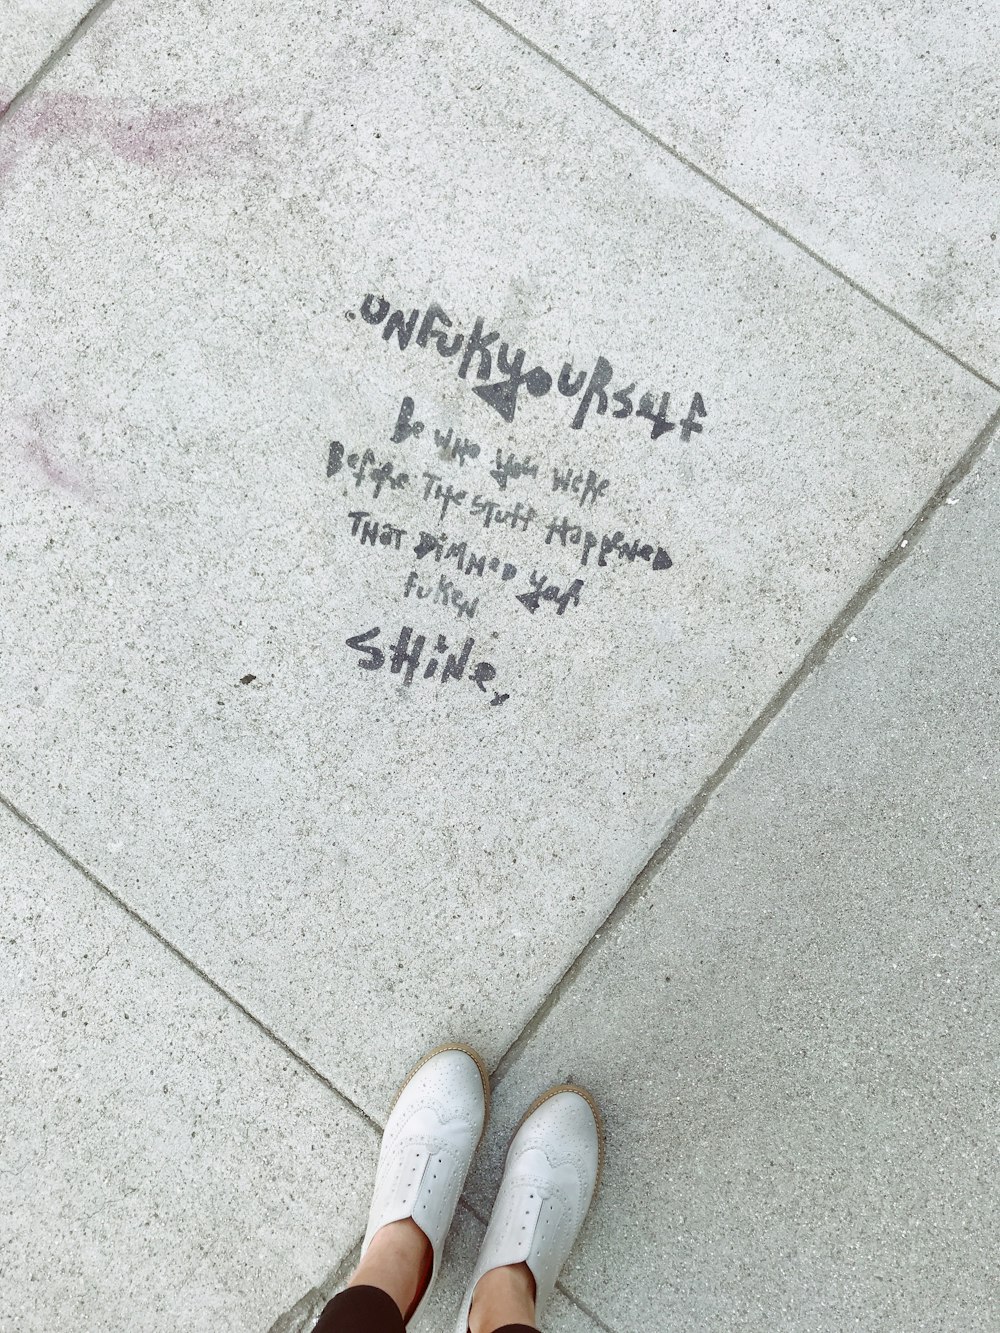 .UNFUKyoURself
Be WHO You WeRe
Before THe STUff HaPPeNeD
THaT DiMMeD YoUR
fUKeN
SHiNe,